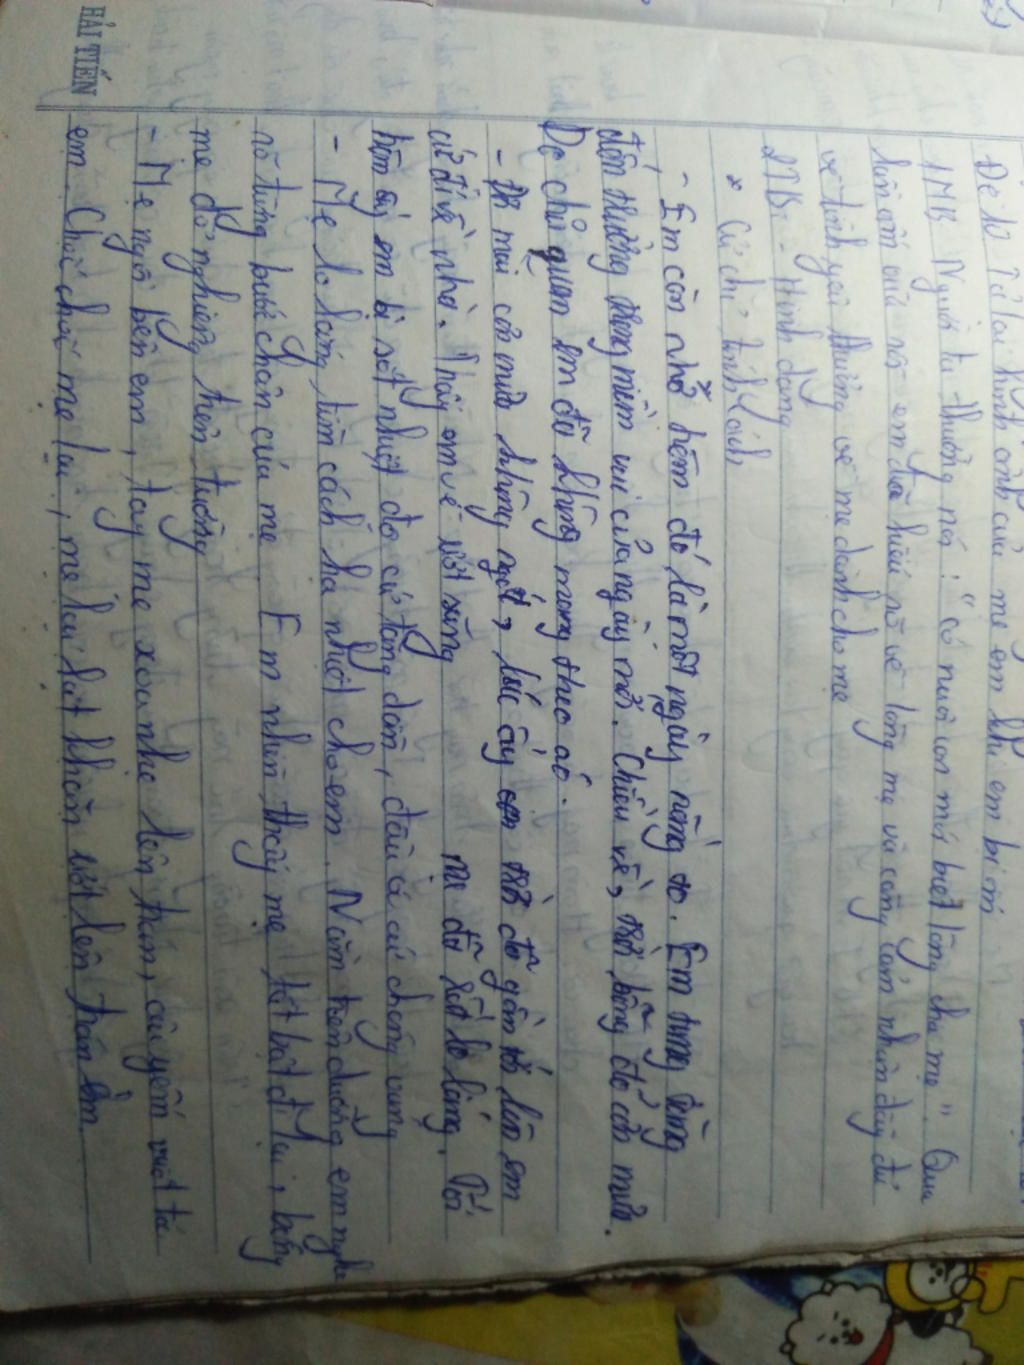 Đề 10: Tả lại hình ảnh của mẹ em khi em bị ốm
1MB Người ta thường nói: "có nuôi con mới biết lòng cha mẹ". Qua
lần ốm vừa rồi em hiểu rõ về lòng mẹ và càng cảm nhận đầy đủ
về tình yêu thương về mẹ dành cho mẹ
2TB: - Hình dáng
* Cử chỉ tính cách
- Em còn nhớ hôm đó là một ngày nắng to. Em tung tăng
đến trường trong niềm vui của ngày mới. Chiều về, trời bỗng đổ cơn mưa.
Do chủ quan em đã không mang theo áo.
- Đã mãi cơn mưa không ngớt, lúc ấy đã gần tối lên em
cứ đi về nhà. Thấy em về ướt sũng mẹ đã rất lo lắng. Tối
hôm ấy em bị sốt nhiệt độ cứ tăng dần, đầu óc cứ choáng váng
- Mẹ lo lắng, tìm cách hạ nhiệt cho em. Nằm trên giường em nghe
rõ từng bước chân của mẹ. Em nhìn thấy mẹ tất bật đi lại, bóng
mẹ đổ nghiêng trên tường
- Mẹ ngồi bên em, tay mẹ xoa nhẹ lên trán, âu yếm vuốt tóc
em. Chốc chốc mẹ lại, mẹ lại lật khăn ướt lên trán em
HẢI TIẾN